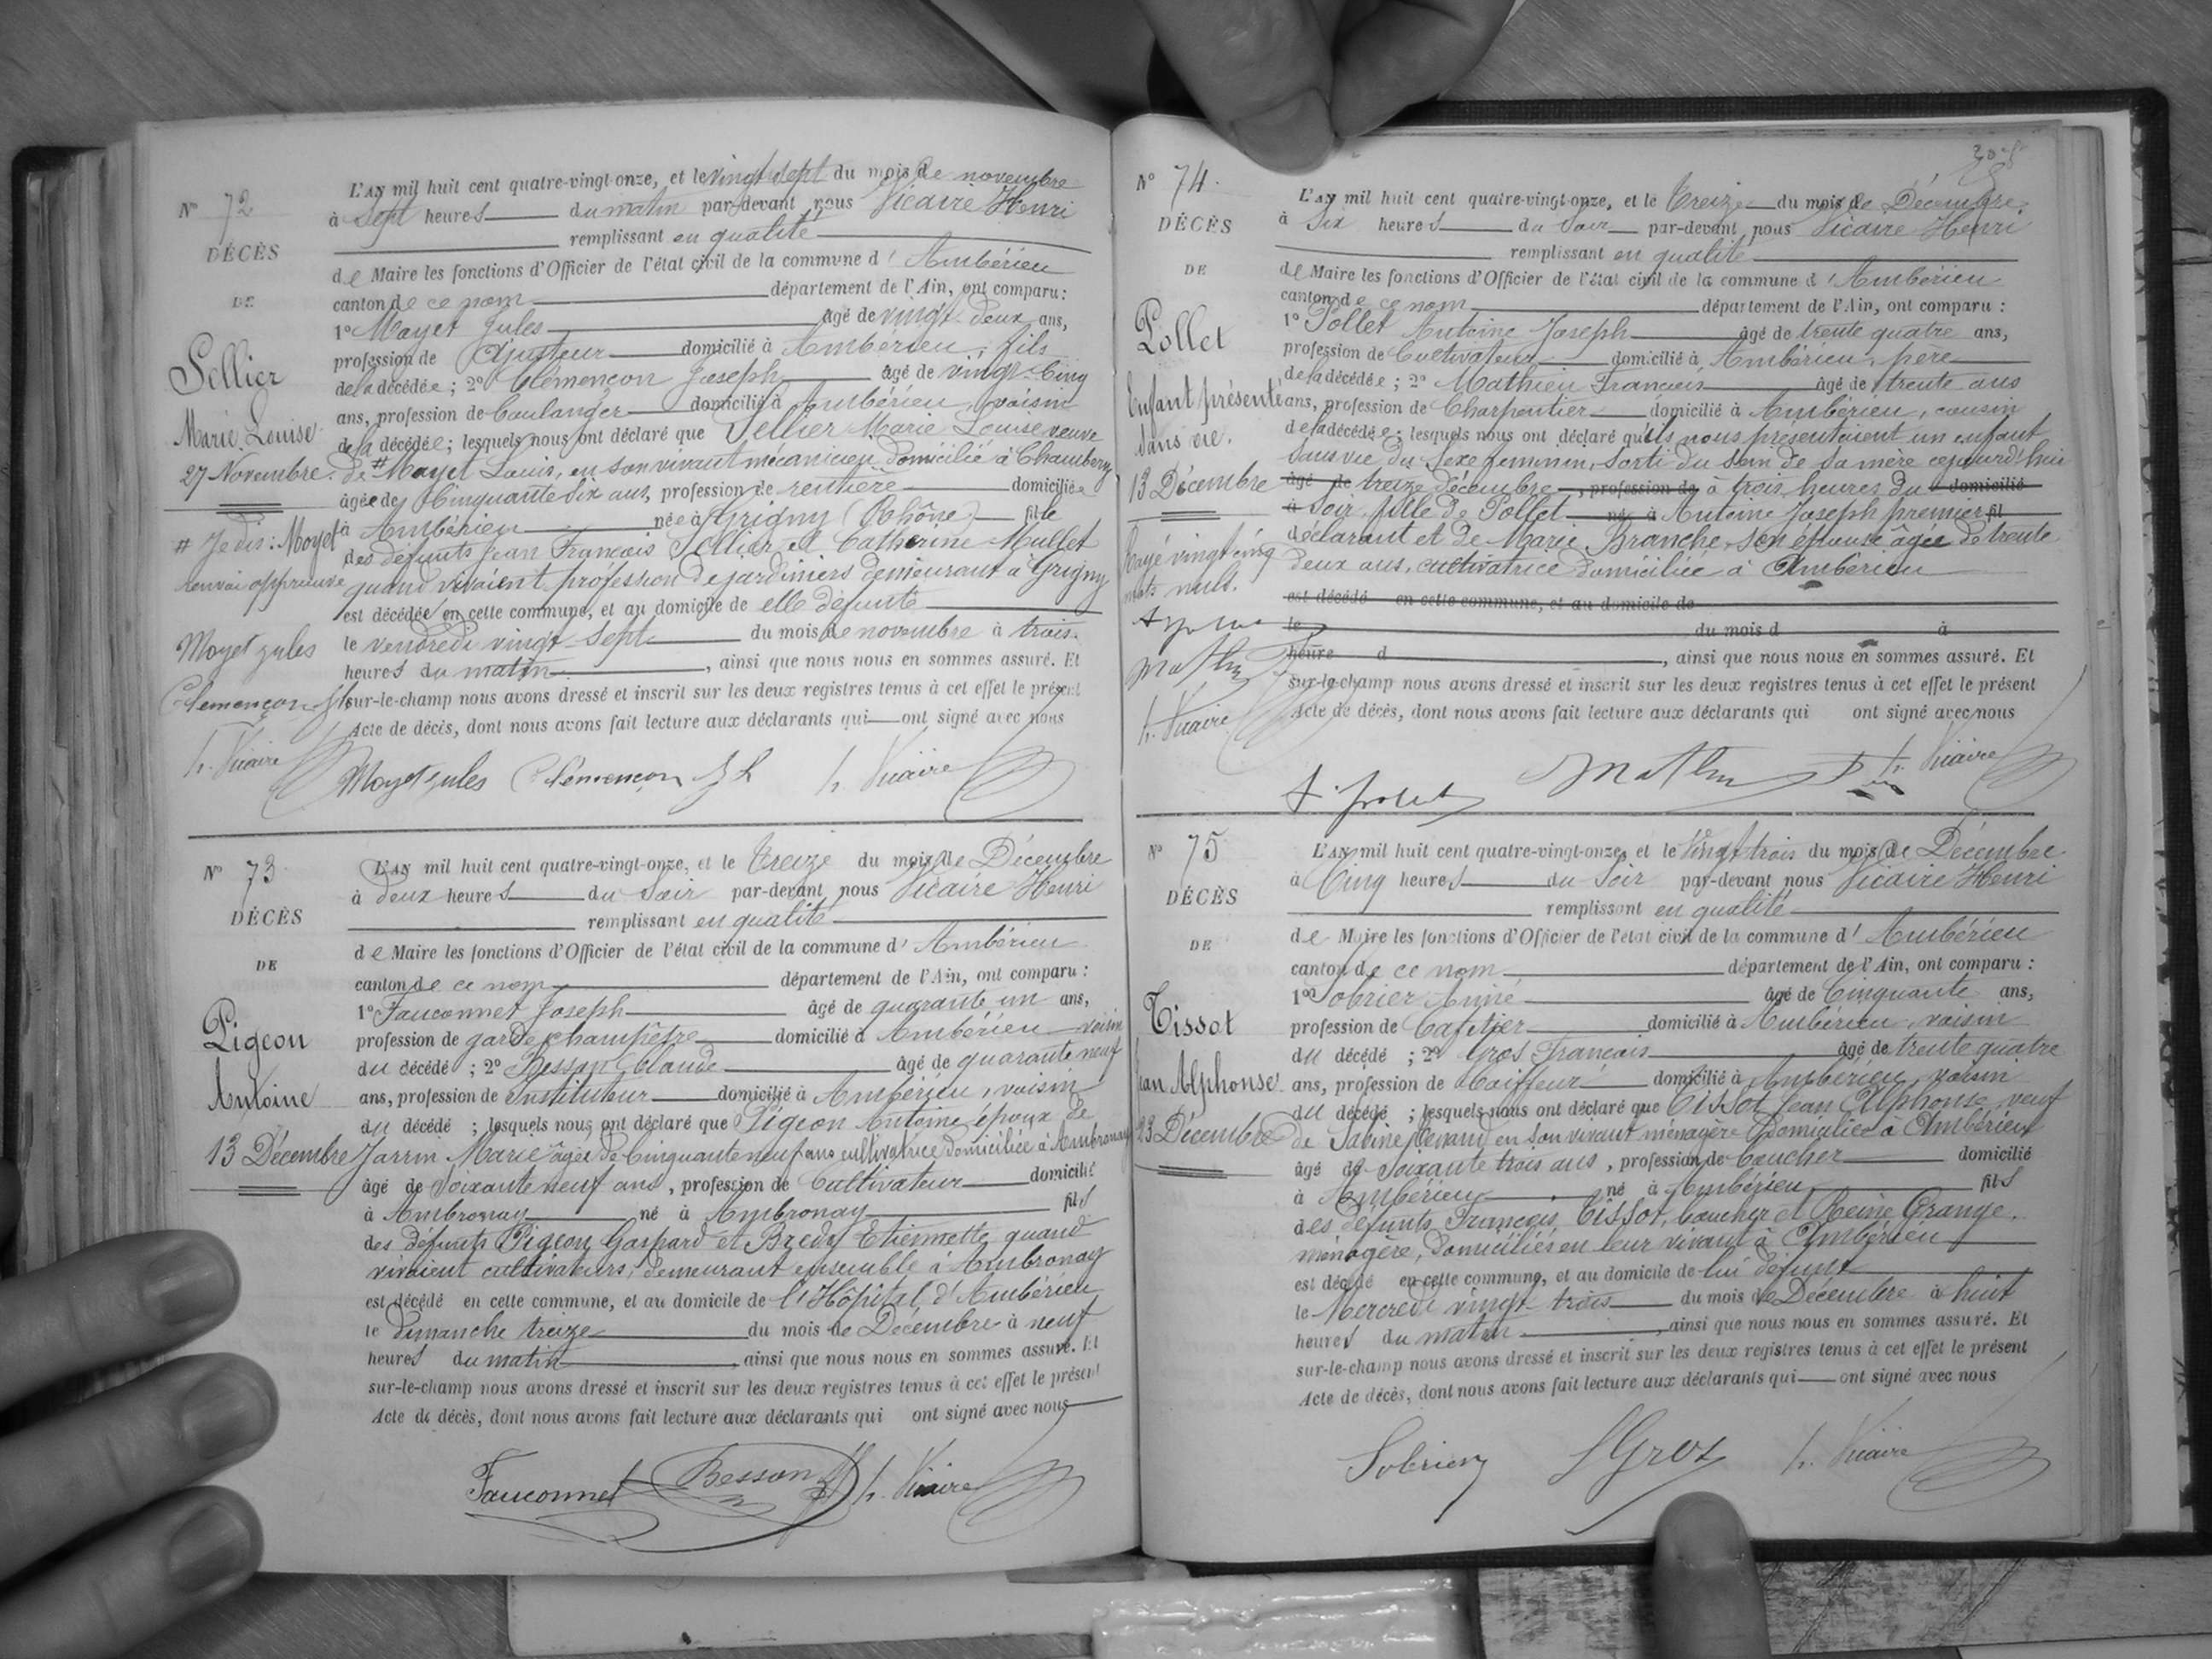 N° 72
DÉCÈS
DE
Sellier
Marie Louise
27 Novembre.
# Je dis: Moyet
renvoi approuvé
Moyet jules
Clemençon Jh
h. Vicaire
L'AN mil huit cent quatre-vingt-onze, et le vingt sept du mois de novembre
à sept heures du matin par-devant nous Vicaire Henri
remplissant en qualité
de Maire les fonctions d'Officier de l'état civil de la commune d'Ambérieu
canton de ce nom département de l'Ain, ont comparu :
1° Moyet Jules âgé de vingt-deux ans,
profession de Ajusteur domicilié à Ambérieu, fils
de la décédée ; 2° Clémençon Joseph âgé de vingt-cinq
ans, profession de boulanger domicilié à Ambérieu, voisin
de la décédée ; lesquels nous ont déclaré que Sellier Marie Louise veuve
de # Mayet Louis, en son vivant mécanicien domicilié à Chambéry
âgée de Cinquante six ans, profession de rentière domiciliée
à Ambérieu née à Grigny (Rhône) fille
des défunts Jean François Sellier et Catherine Mullet
quand vivaient profession de jardiniers demeurant à Grigny
est décédée en cette commune, et au domicile de elle défunte
le vendredi vingt-sept du mois de novembre à trois
heures du matin, ainsi que nous nous en sommes assuré. Et
sur-le-champ nous avons dressé et inscrit sur les deux registres tenus à cet effet le présent
Acte de décès, dont nous avons fait lecture aux déclarants qui ont signé avec nous
Moyet jules Clémençon Jh h. Vicaire
N° 73
DÉCÈS
DE
Pigeon
Antoine
13 Décembre
L'AN mil huit cent quatre-vingt-onze, et le treize du mois de Décembre
à deux heures du soir par-devant nous Vicaire Henri
remplissant en qualité
de Maire les fonctions d'Officier de l'état civil de la commune d'Ambérieu
canton de ce nom département de l'Ain, ont comparu :
1° Fauconnet Joseph âgé de quarante un ans,
profession de garde champêtre domicilié à Ambérieu voisin
du décédé ; 2° Besson Claude âgé de quarante neuf
ans, profession de Instituteur domicilié à Ambérieu, voisin
du décédé ; lesquels nous ont déclaré que Pigeon Antoine époux de
Jarrin Marie âgée de Cinquante neuf ans cultivatrice domiciliée à Ambronay
âgé de soixante neuf ans, profession de Cultivateur domicilié
à Ambronay né à Ambronay fils
des défunts Pigeon Gaspard et Bredy Etiennette quand
vivaient cultivateurs, demeurant ensemble à Ambronay
est décédé en cette commune, et au domicile de l'Hôpital d'Ambérieu
le dimanche treize du mois de Décembre à neuf
heures du matin, ainsi que nous nous en sommes assuré. Et
sur-le-champ nous avons dressé et inscrit sur les deux registres tenus à cet effet le présent
Acte de décès, dont nous avons fait lecture aux déclarants qui ont signé avec nous
Fauconnet Besson h. Vicaire
N° 74
DÉCÈS
DE
Pollet
Enfant présenté
sans vie.
13 Décembre
Rayé vingt cinq
mots nuls.
h. Vicaire
L'AN mil huit cent quatre-vingt-onze, et le treize du mois de Décembre
à six heures du soir par-devant nous Vicaire Henri
remplissant en qualité
de Maire les fonctions d'Officier de l'état civil de la commune d'Ambérieu
canton de ce nom département de l'Ain, ont comparu :
1° Pollet Antoine Joseph âgé de trente quatre ans,
profession de Cultivateur domicilié à Ambérieu, père
de la décédée ; 2° Mathieu François âgé de trente ans
ans, profession de Charpentier domicilié à Ambérieu, cousin
de la décédée ; lesquels nous ont déclaré qu'ils nous présentaient un enfant
sans vie du sexe féminin, sorti du sein de sa mère cejourd'hui
âgé de treize décembre, profession de à trois heures du domicilié
à soir, fille de Pollet née à Antoine Joseph premier fil
déclarant et de Marie Branche, son épouse âgée de trente
deux ans, cultivatrice domiciliée à Ambérieu
est décédé en cette commune, et au domicile de
le du mois d à
heure d, ainsi que nous nous en sommes assuré. Et
sur-le-champ nous avons dressé et inscrit sur les deux registres tenus à cet effet le présent
Acte de décès, dont nous avons fait lecture aux déclarants qui ont signé avec nous
h. Vicaire
N° 75
DÉCÈS
DE
Tissot
Jean Alphonse
23 Décembre
L'AN mil huit cent quatre-vingt-onze, et le vingt trois du mois de Décembre
à Cinq heures du soir par-devant nous Vicaire Henri
remplissant en qualité
de Maire les fonctions d'Officier de l'état civil de la commune d'Ambérieu
canton de ce nom département de l'Ain, ont comparu :
1° Sobrier Aimé âgé de Cinquante ans,
profession de Cafetier domicilié à Ambérieu, voisin
du décédé ; 2° Gros François âgé de trente quatre
ans, profession de Coiffeur domicilié à Ambérieu, voisin
du décédé ; lesquels nous ont déclaré que Tissot Jean Alphonse, veuf
de Sabine en son vivant ménagère domiciliée à Ambérieu
âgé de soixante trois ans, profession de boucher domicilié
à Ambérieu né à Ambérieu fils
des défunts François Tissot, boucher et Reine Grange,
ménagère, domiciliés en leur vivant à Ambérieu
est décédé en cette commune, et au domicile de lui défunt
le Mercredi vingt-trois du mois de Décembre à huit
heures du matin, ainsi que nous nous en sommes assuré. Et
sur-le-champ nous avons dressé et inscrit sur les deux registres tenus à cet effet le présent
Acte de décès, dont nous avons fait lecture aux déclarants qui ont signé avec nous
Sobrier Gros h. Vicaire